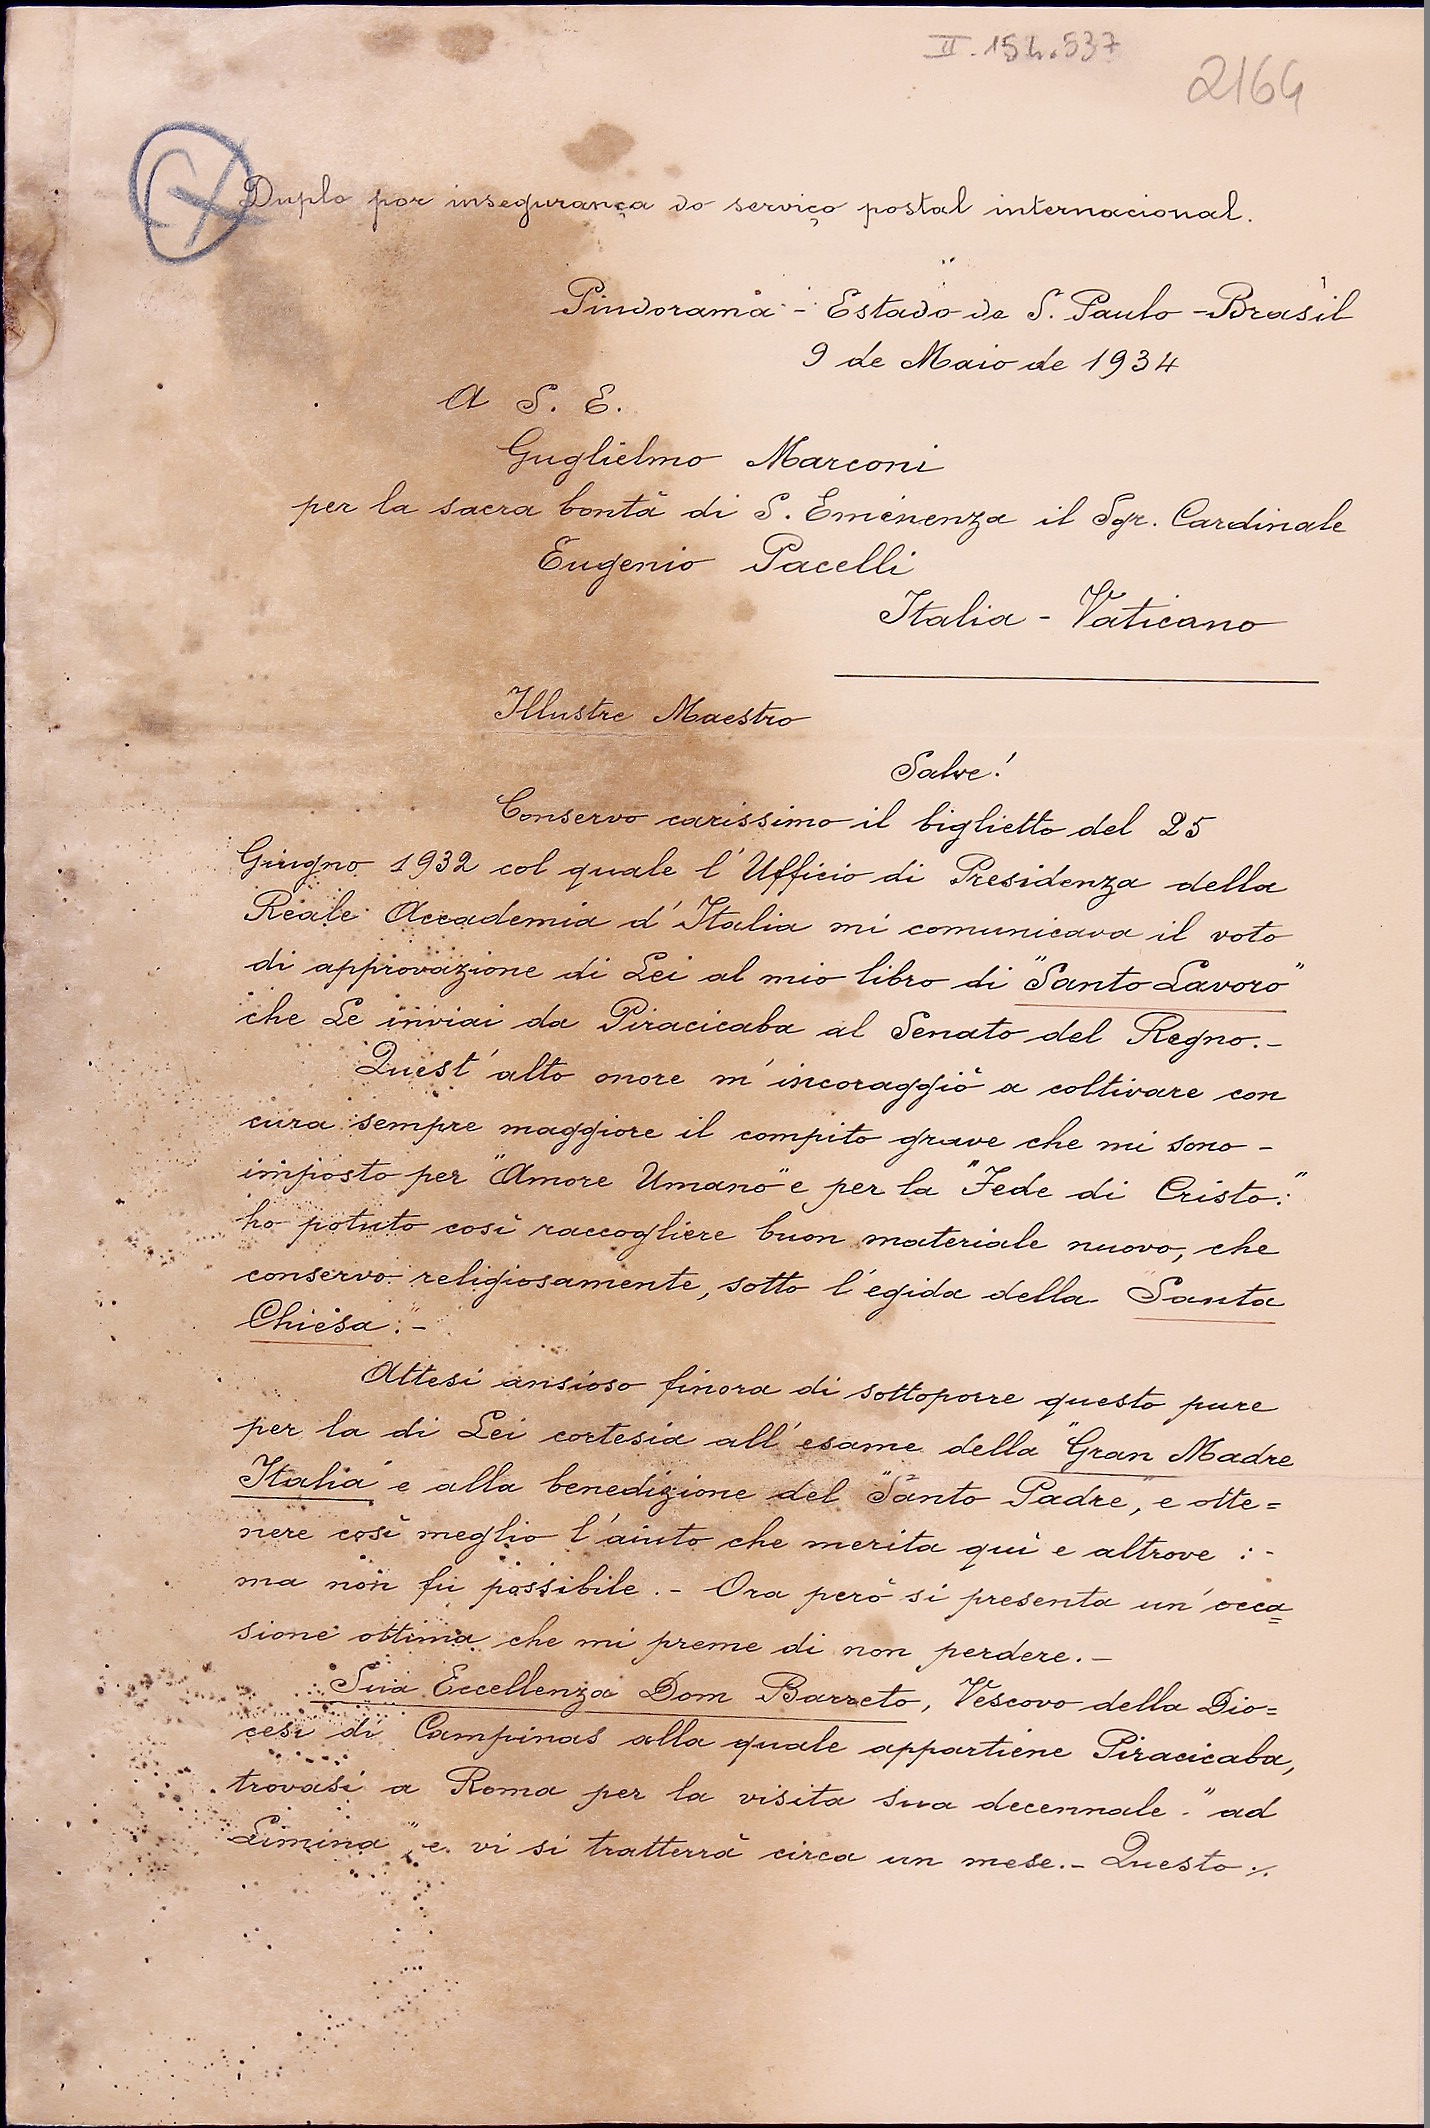 II. 154.537
2164
Duplo por insegurança do serviço postal internacional.
Pindorama - Estado de S. Paulo - Brasil
9 de Maio de 1934
A S. E.
Guglielmo Marconi
per la sacra bontà di S. Eminenza il Sgr. Cardinale
Eugenio Pacelli
Italia - Vaticano
Illustre Maestro
Salve!
Conservo carissimo il biglietto del 25
Giugno 1932 col quale l'Ufficio di Presidenza della
Reale Accademia d'Italia mi comunicava il voto
di approvazione di Lei al mio libro di "Santo Lavoro"
che Le inviai da Piracicaba al Senato del Regno.-
Quest'alto onore m'incoraggiò a coltivare con
cura sempre maggiore il compito grave che mi sono -
imposto per "Amore Umano" e per la "Fede di Cristo:"
ho potuto così raccogliere buon materiale nuovo, che
conservo religiosamente, sotto l'egida della "Santa
Chiesa:"-
Attesi ansioso finora di sottoporre questo pure
per la di Lei cortesia all'esame della "Gran Madre
Italia" e alla benedizione del "Santo Padre", e otte=
nere così meglio l'aiuto che merita quì e altrove :-
ma non fu possibile.- Ora però si presenta un'occa=
sione ottima che mi preme di non perdere.-
Sua Eccellenza Dom Barreto, Vescovo della Dio=
cesi di Campinas alla quale appartiene Piracicaba,
trovasi a Roma per la visita sua decennale "ad
Limina" e vi si tratterrà circa un mese.- Questo ./.